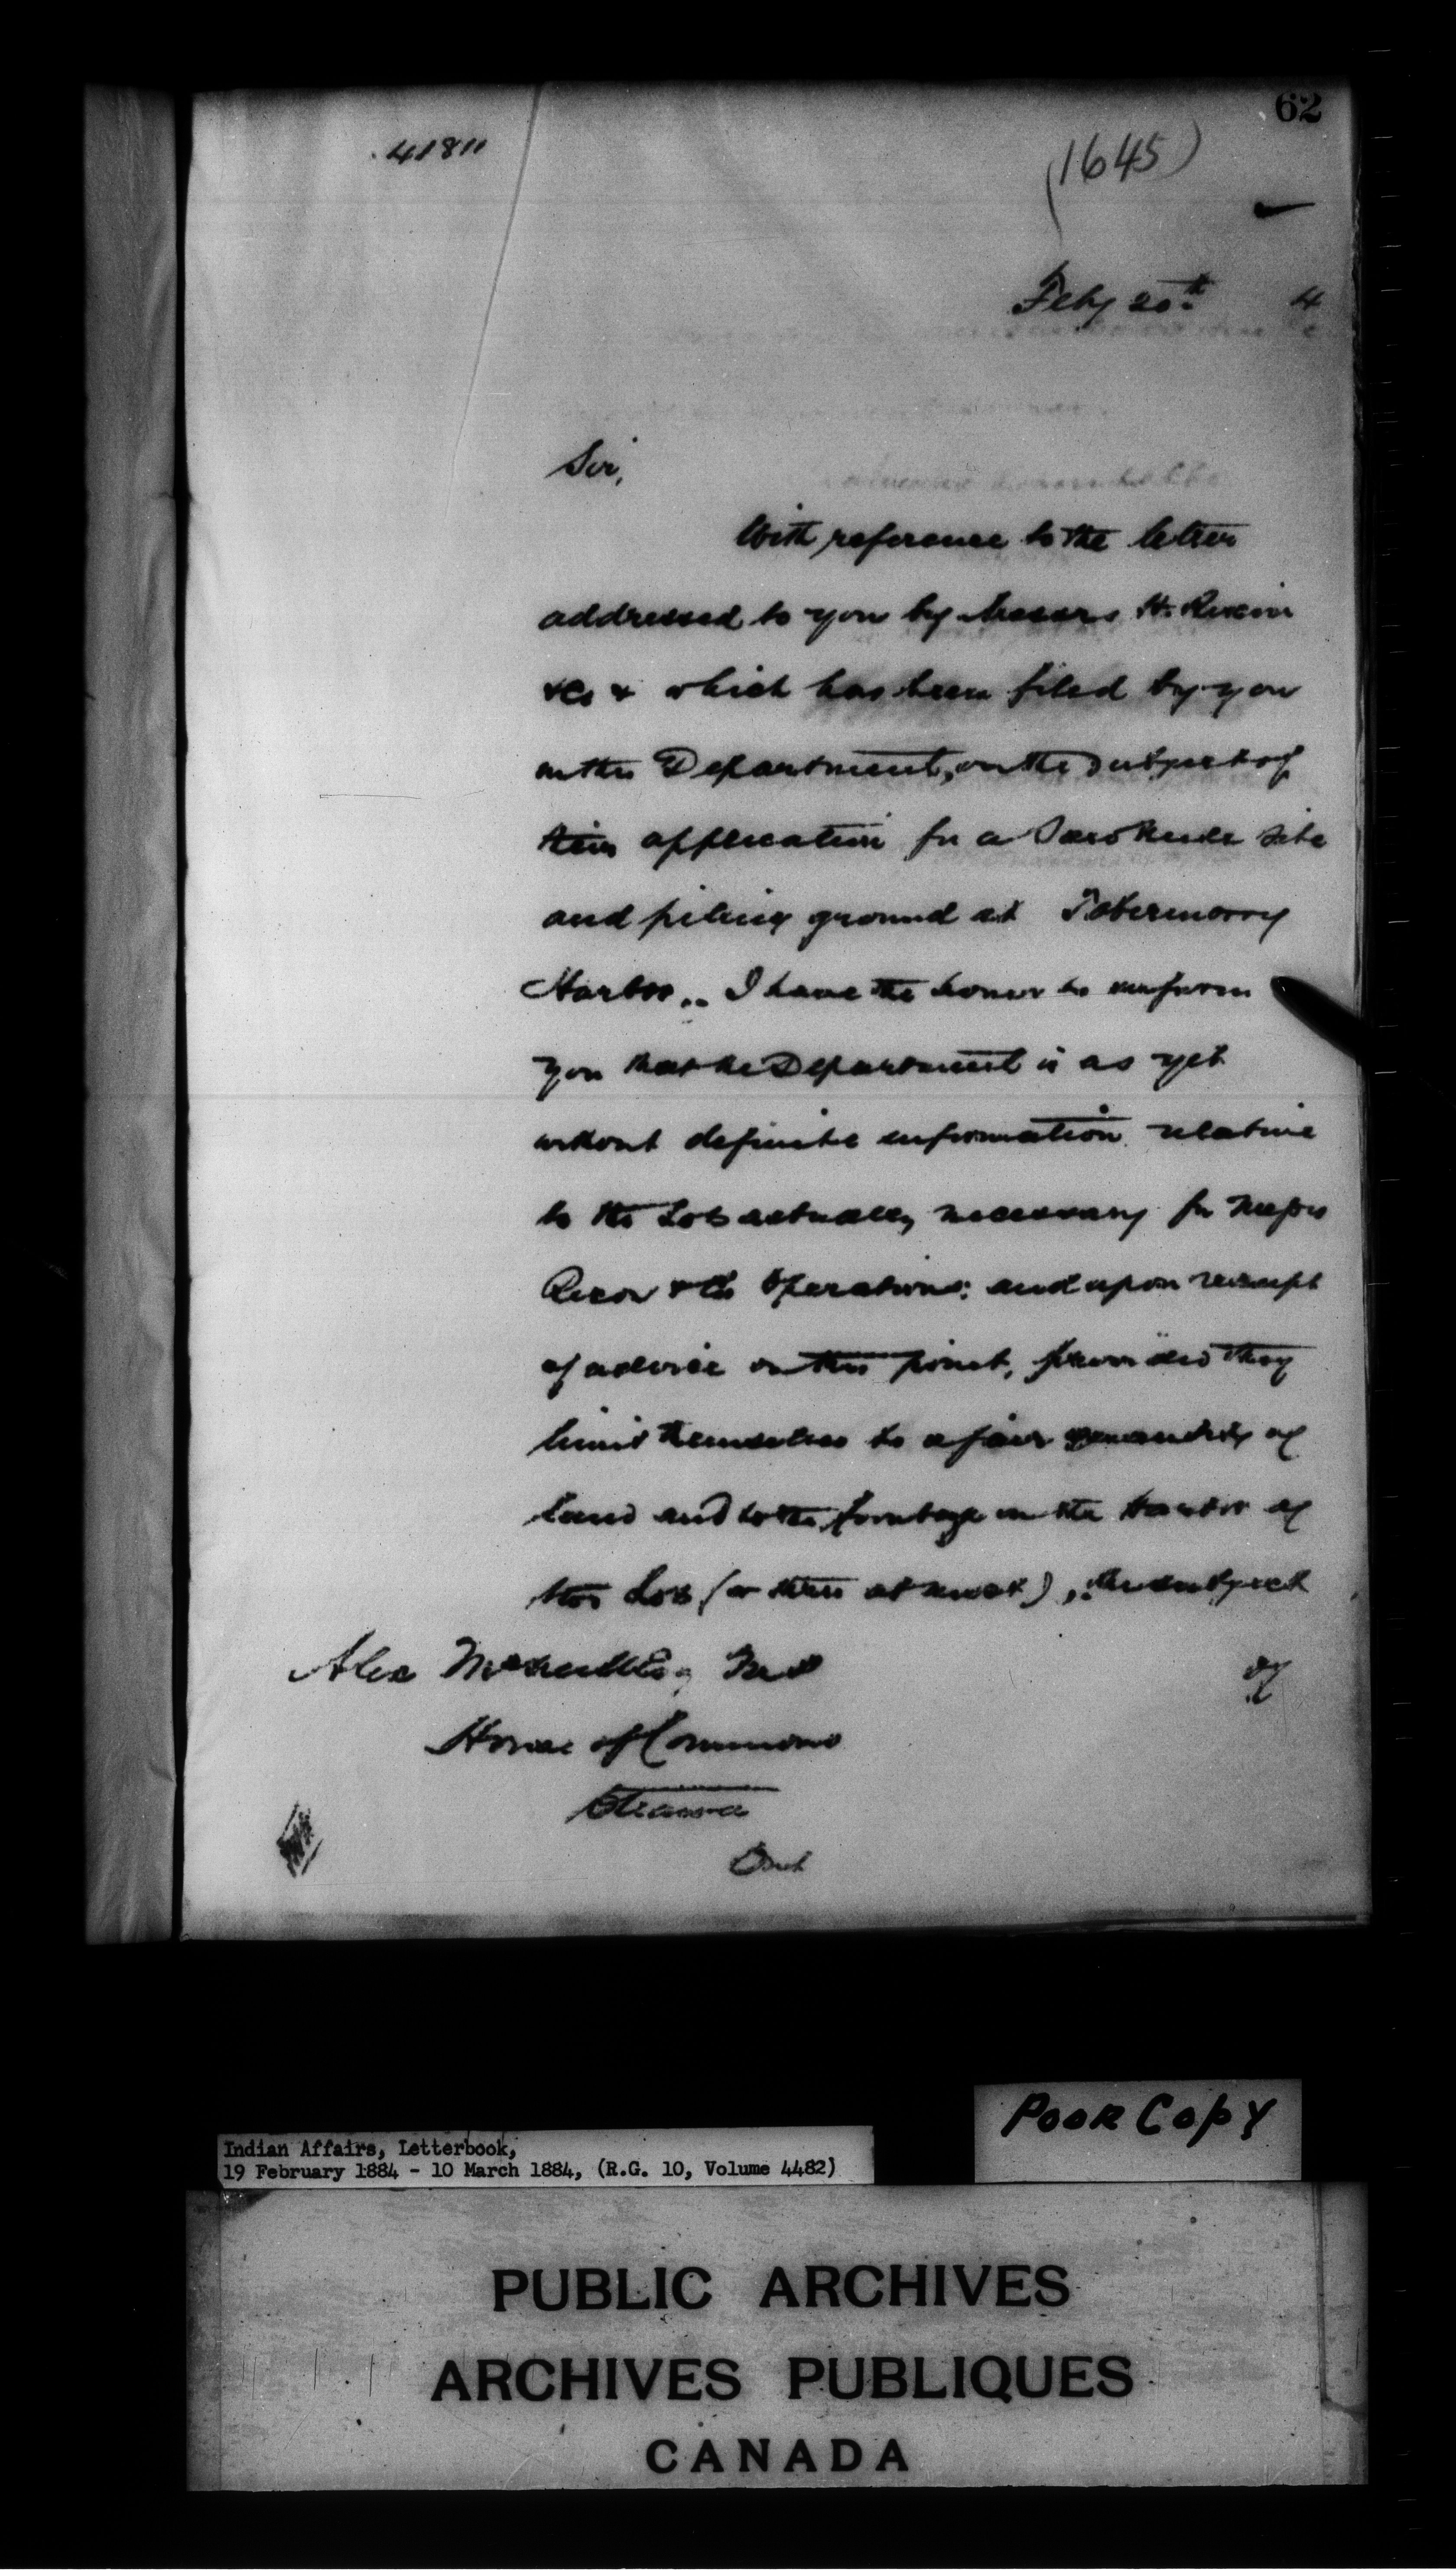 62
41811
(1645)
Feby 20th 4
Sir,
With reference to the letter
addressed to you by Messrs H.
&Co & which has been filed by you
in this Department, on the subject of
their application for a Saw Mill site
and piling ground at Tobermorry
Harbor.. I have the honor to inform
you that the Department is as yet
without definite information relative
to the Lots actually necessary for Messrs
& Co Operations: and upon receipt
of advice on this point, provided they
limit themselves to a fair quantity of
land and to the frontage on the Harbor of
two Lots (or three at most), the subject
of
Alex McNeill Esq M.P
House of Commons
Ottawa
Ont
POOR COPY
Indian Affairs, Letterbook,
19 February 1884 - 10 March 1884, (R.G. 10, Volume 4482)
PUBLIC ARCHIVES
ARCHIVES PUBLIQUES
CANADA